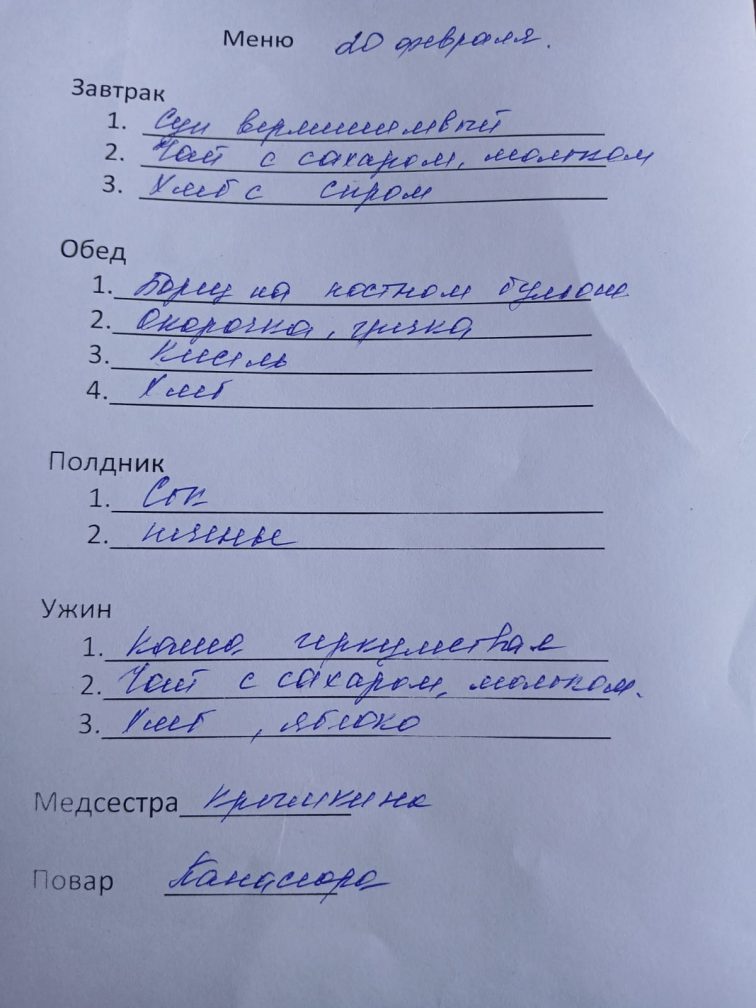 Меню 20 февраля.
Завтрак
1. Суп вермишелевый
2. Чай с сахаром, молоком
3. Хлеб с сыром
Обед
1. Борщ на костном бульоне
2. Окорочка, гречка
3. Кисель
4. Хлеб
Полдник
1. Сок
2. печенье
Ужин
1. Каша геркулесовая
2. Чай с сахаром, молоком.
3. Хлеб, яблоко
Медсестра
Повар